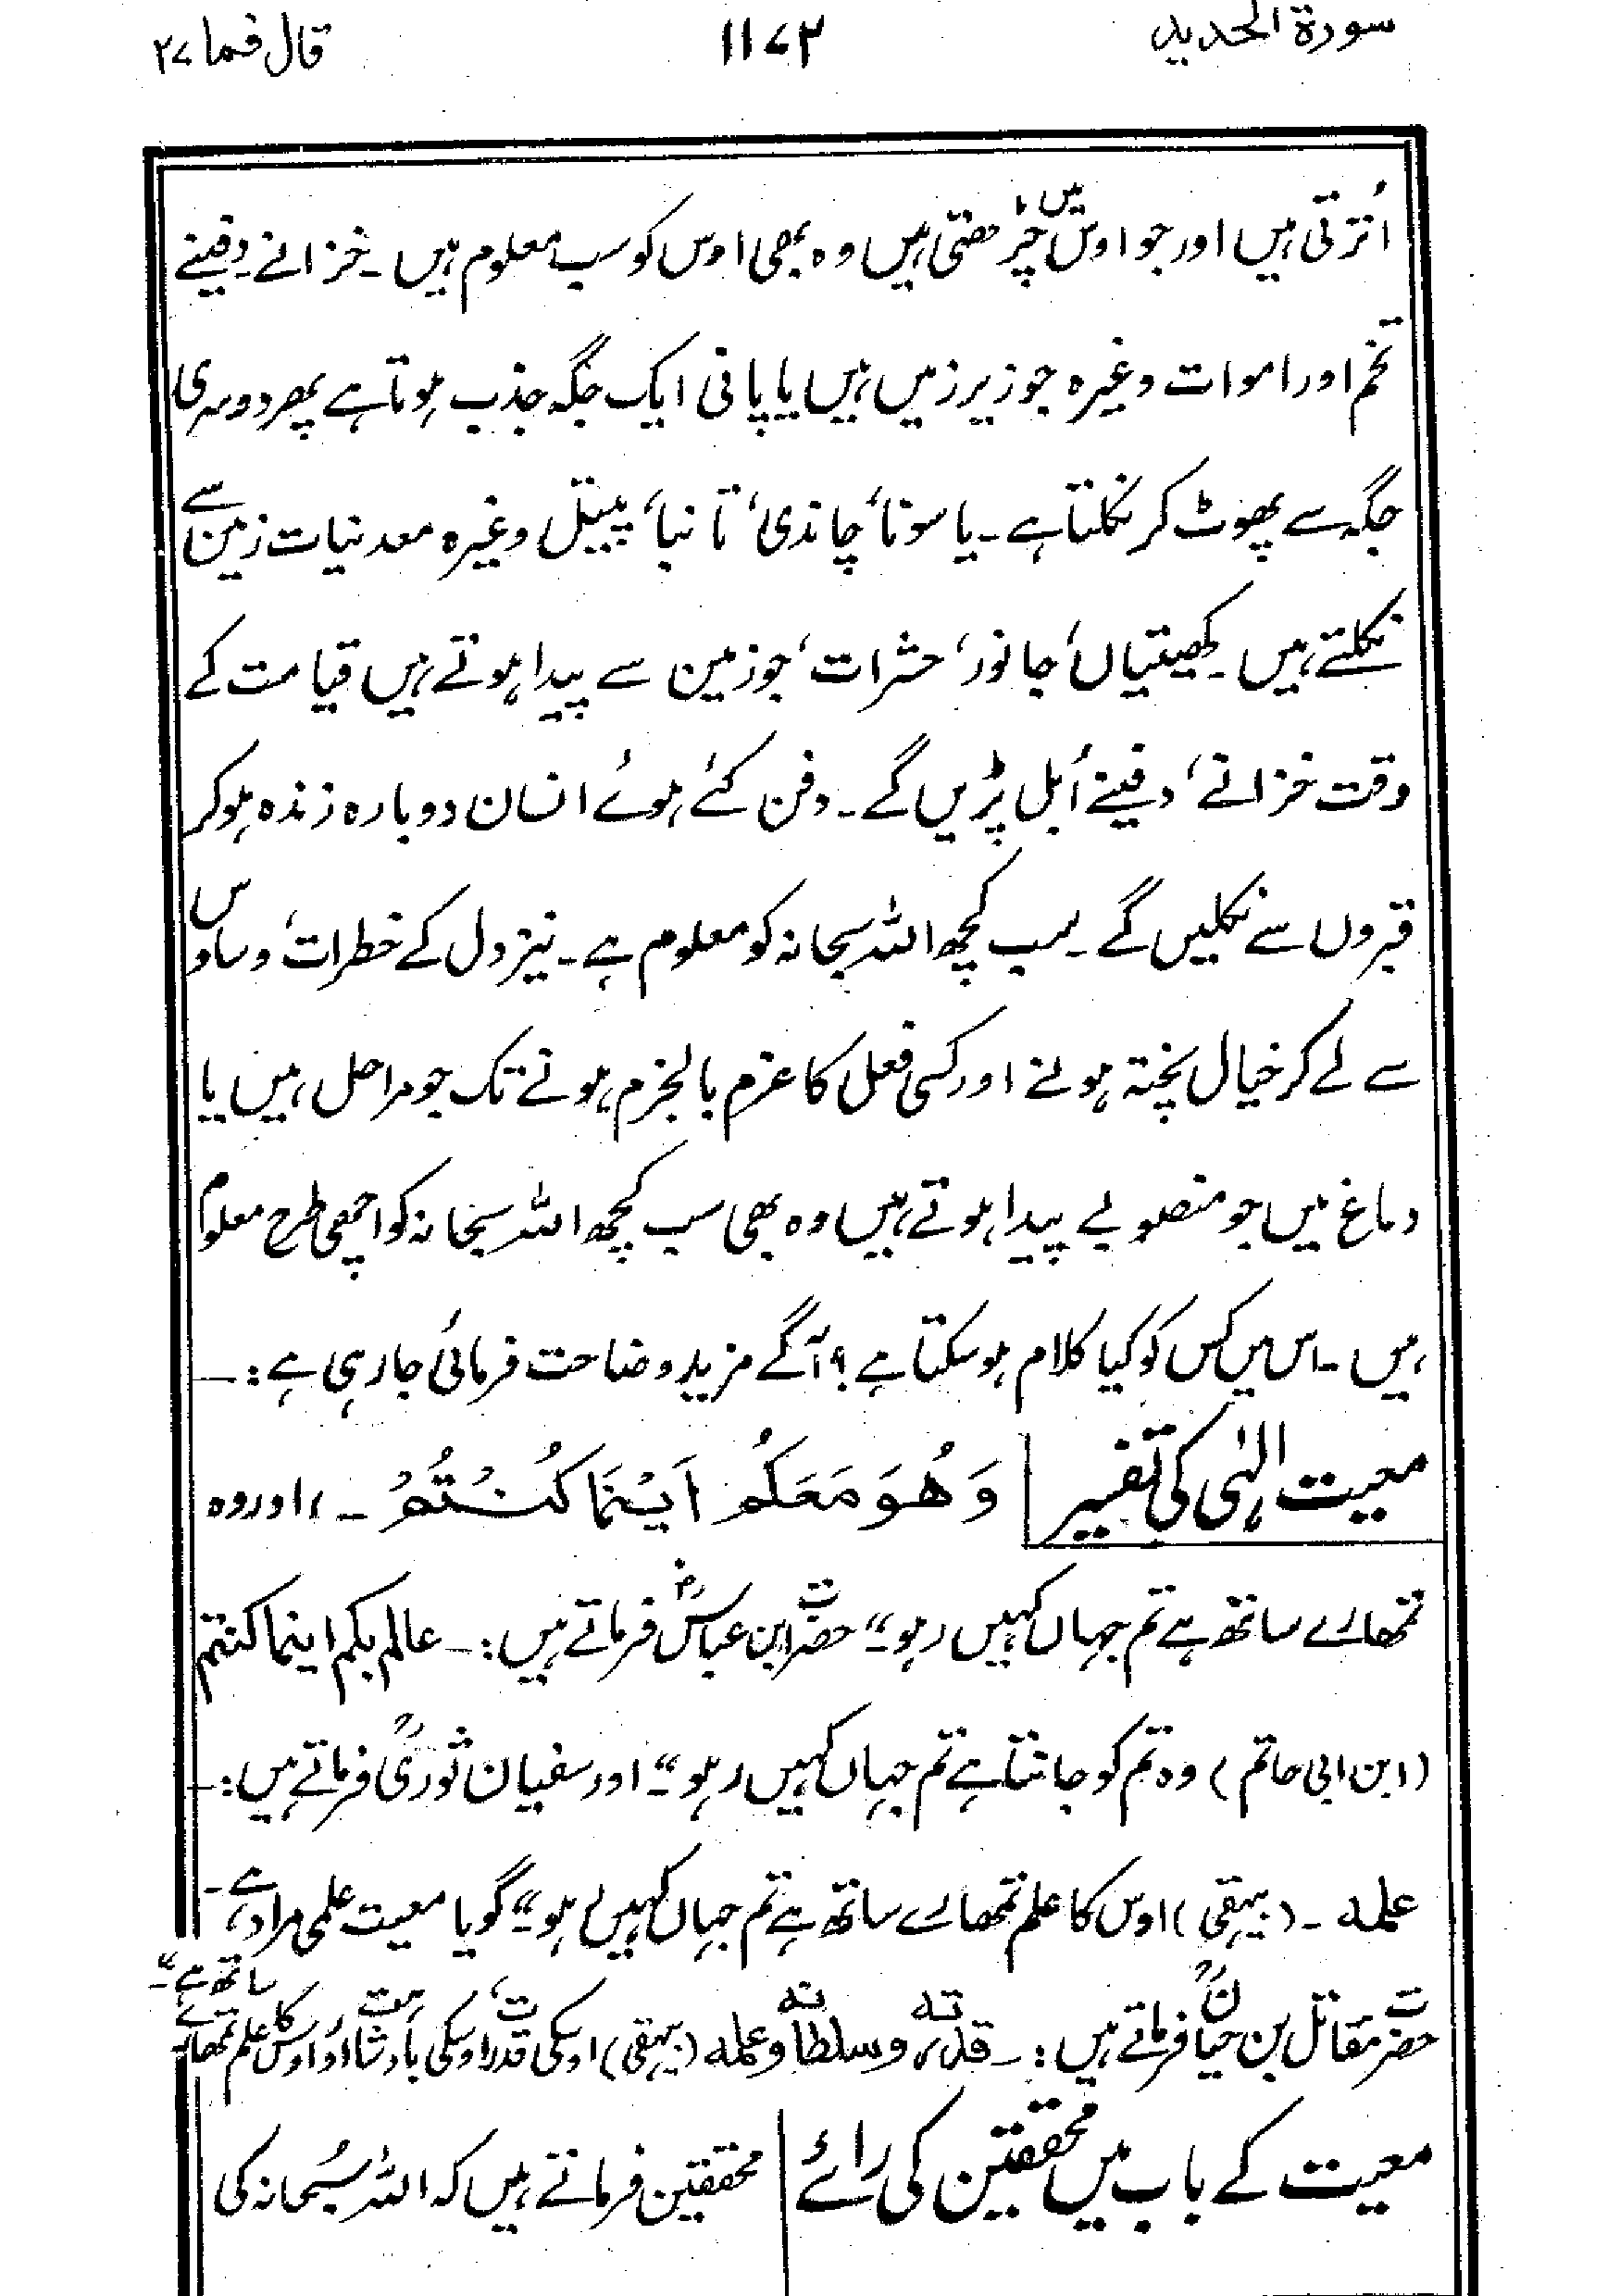 سورۃ الحدید ۱۱۷۲ قال فما ۲۷
اُترتی ہیں اور جو اوس میں چڑھتی ہیں وہ بھی اوس کو سب معلوم ہیں۔ خزانے۔ دفینے
تخم اور اموات وغیرہ جو زیر زمیں ہیں یا پانی ایک جگہ جذب ہوتا ہے پھر دوسری
جگہ سے پھوٹ کر نکلتا ہے۔ یا سونا، چاندی، تانبا، پیتل وغیرہ معدنیات زمین سے
نکلتے ہیں۔ کھیتیاں، جانور، حشرات، جو زمین سے پیدا ہوتے ہیں قیامت کے
وقت خزانے، دفینے اُبل پڑیں گے۔ دفن کئے ہوئے انسان دوبارہ زندہ ہو کر
قبروں سے نکلیں گے۔ سب کچھ اللہ سبحانہ کو معلوم ہے۔ نیز دل کے خطرات، وساوس
سے لے کر خیال پختہ ہونے اور کسی فعل کا عزم بالجزم ہونے تک جو مراحل ہیں یا
دماغ میں جو منصوبے پیدا ہوتے ہیں وہ بھی سب کچھ اللہ سبحانہ کو اچھی طرح معلوم
ہیں۔ اس میں کس کو کیا کلام ہو سکتا ہے؟ آگے مزید وضاحت فرمائی جا رہی ہے:۔
معیت الہٰی کی تفسیر وَهُوَ مَعَكُمْ اَیْنَمَا كُنْتُمْ ۔ ،، اور وہ
تمھارے ساتھ ہے تم جہاں کہیں رہو،،۔ حضرت ابن عباسؓ فرماتے ہیں:۔ عالم بکم اینما کنتم
(ابن ابی حاتم) وہ تم کو جانتا ہے تم جہاں کہیں رہو،،۔ اور سفیان ثوریؒ فرماتے ہیں:۔
علمہ۔ (بیہقی) اوس کا علم تمھارے ساتھ ہے تم جہاں کہیں رہو،،۔ گویا معیت علمی مراد ہے۔
حضرت مقاتل بن حیانؒ فرماتے ہیں:۔ قدرتہ وسلطانہ وعلمہ (بیہقی) اوسکی قدرت، اوسکی بادشاہت اور اوس کا علم تمھارے ساتھ ہے،،۔
معیت کے باب میں محققین کی رائے محققین فرماتے ہیں کہ اللہ سُبحانہ کی